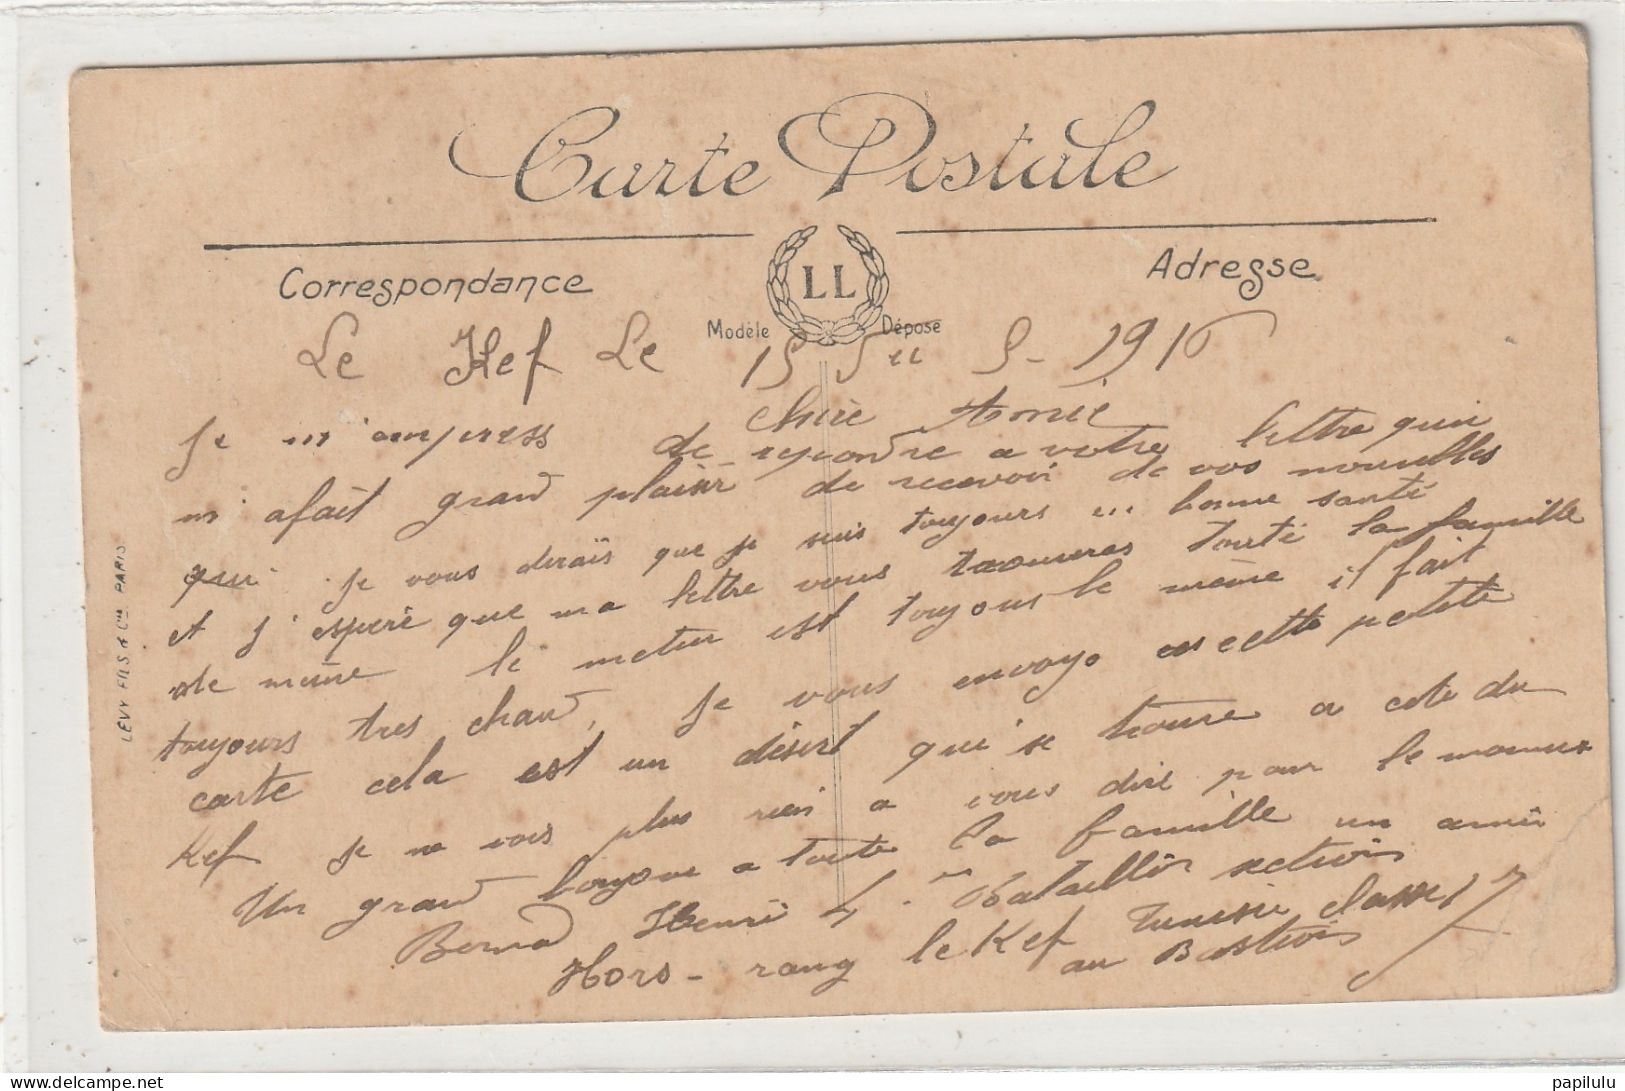 Carte Postale
Correspondance
LL
Adresse
Modèle Déposé
Le Kef Le 15 5- 1916
Chère Amie
Je m'empress de repondre a votre lettre qui
m'afait grand plaisir de recevoir de vos nouvelles
qui je vous dirais que je suis toujours bonne santé
et j'esperé que ma lettre vous trouveras touté la famille
de même le metier est toujours le même il fait
toujours tres chaud. Je vous envoyo cette petite
carte cela est un désert qui se trouve a coté du
Kef je ne vois plus rien a vous dire pour le moment
Un grand bonjour a toute la famille un ami
Bernad Henri 4 Bataillon section
Hors-rang le Kef Tunisie classe 17
au Bastion
LEVY FILS & Cie PARIS
papilulu
delcampe.net